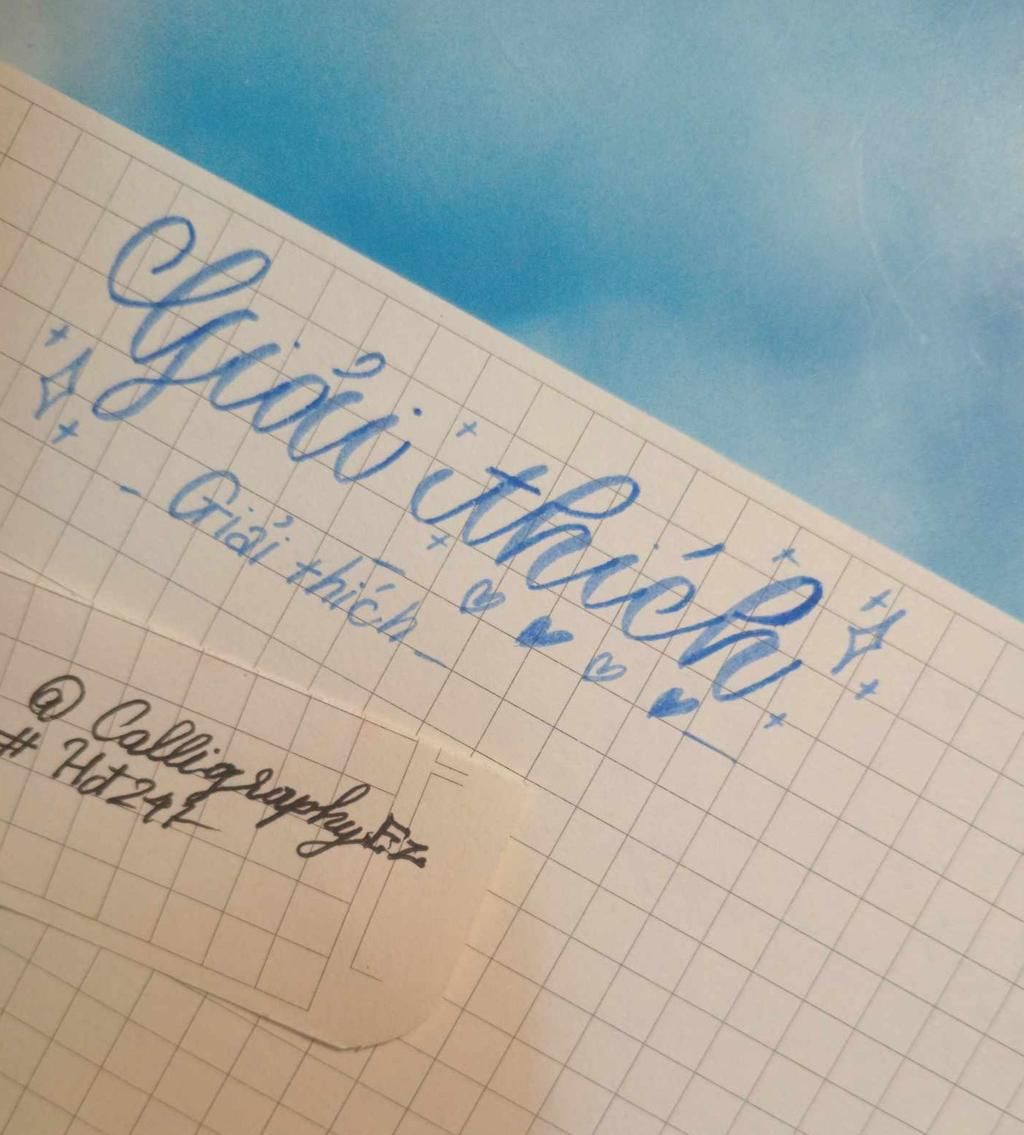 Giải thích
- Giải thích -
@ Calligraphy.Ez